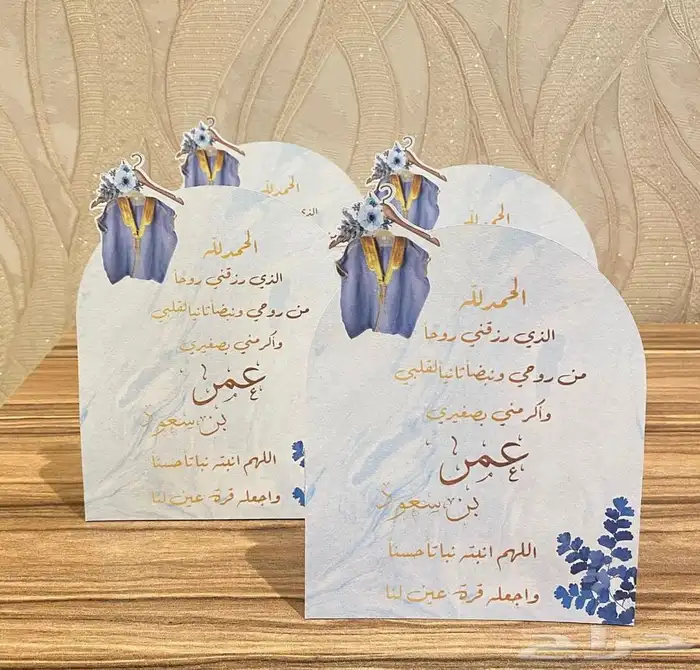 الحمدلله
الذي
الحمدلله
الحمدلله
الذي رزقني روحاً
من روحي ونبضاً ثانياً لقلبي
واكرمني بصغيري
عمر
بن سعود
اللهم انبته نباتاً حسناً
واجعله قرة عين لنا
الحمدلله
الذي رزقني روحاً
من روحي ونبضاً ثانياً لقلبي
واكرمني بصغيري
عمر
بن سعود
اللهم انبته نباتاً حسناً
واجعله قرة عين لنا
حراج